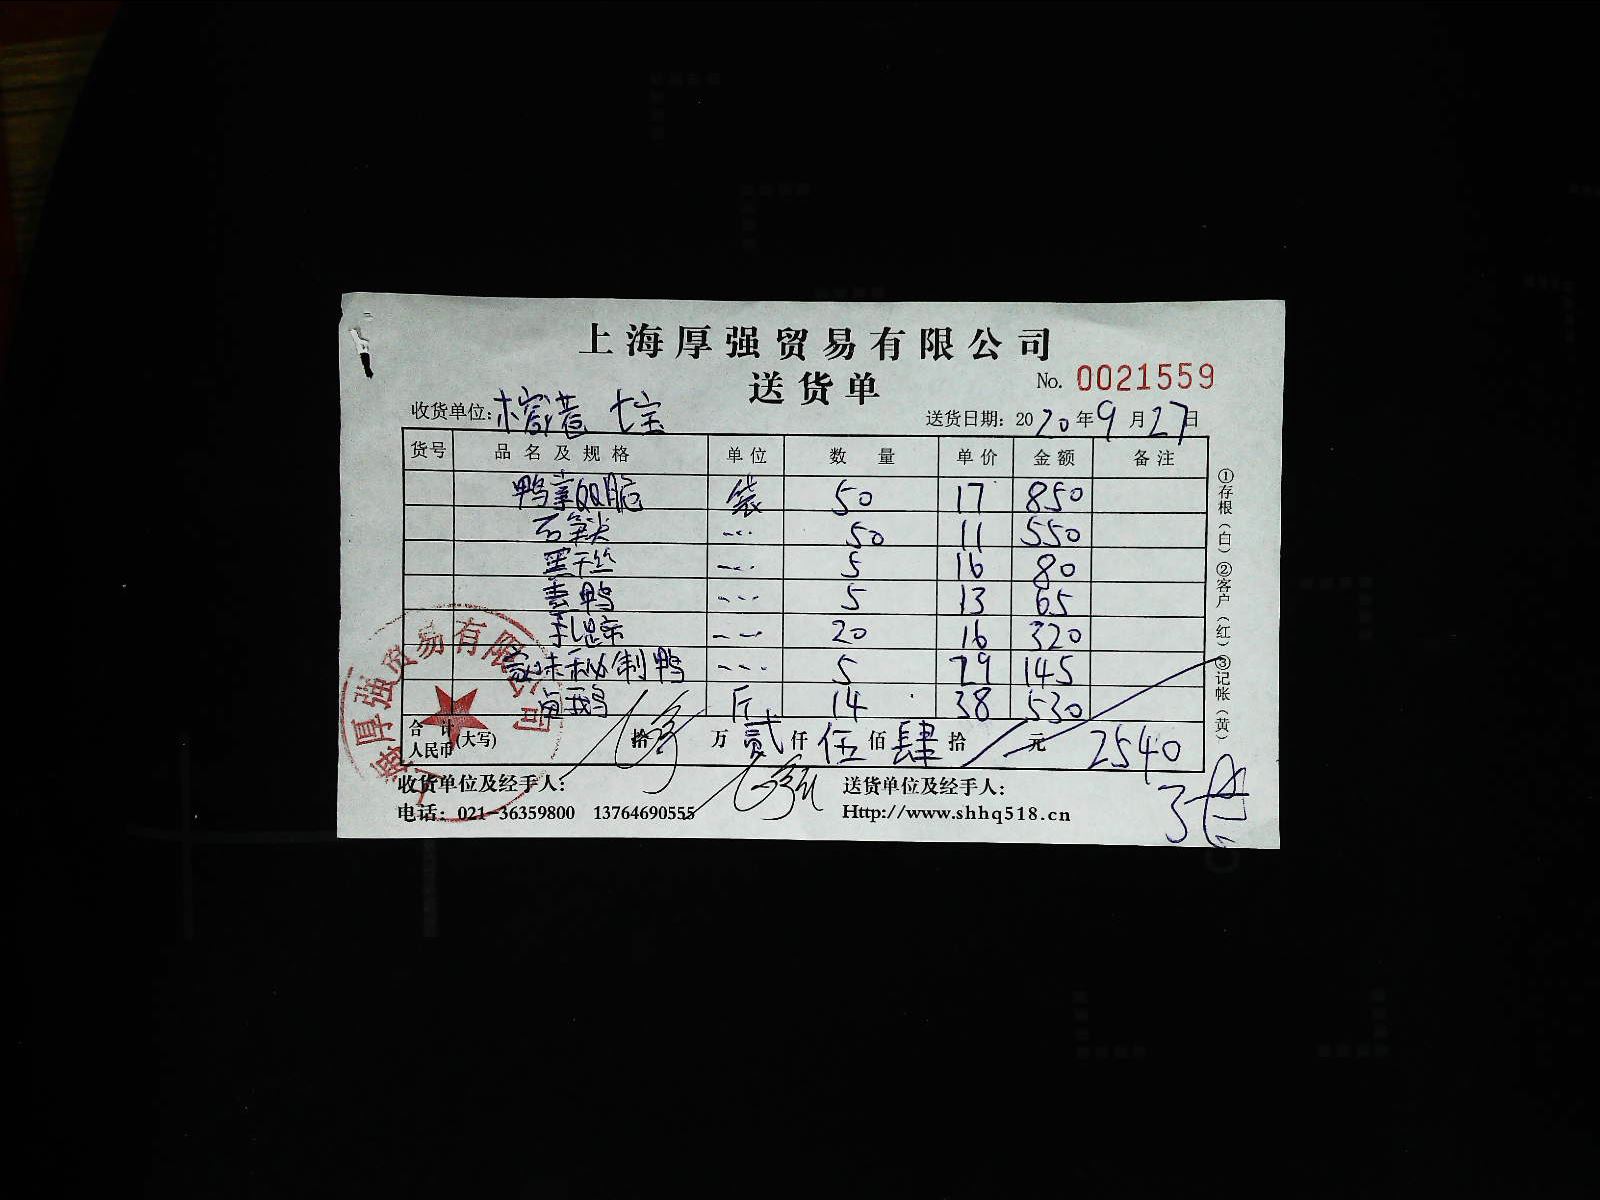 上海厚强贸易有限公司
送货单
No. 0021559
收货单位: 七宝
送货日期: 2020年9月27日
货号 品名及规格 单位 数量 单价 金额 备注
鸭掌 袋 50 17 850
石笋尖 --- 50 11 550
黑干丝 --- 5 16 80
素鸭 --- 5 13 65
--- 20 16 320
秘制鸭 --- 5 29 145
卤鹅 斤 14 38 530
合计人民币(大写) 拾 万 贰 仟 伍 佰 肆 拾 元 2540
收货单位及经手人: 送货单位及经手人:
电话: 021-36359800 13764690555 Http://www.shhq518.cn
①存根(白)②客户(红)③记帐(黄)
厚强贸易有限公司